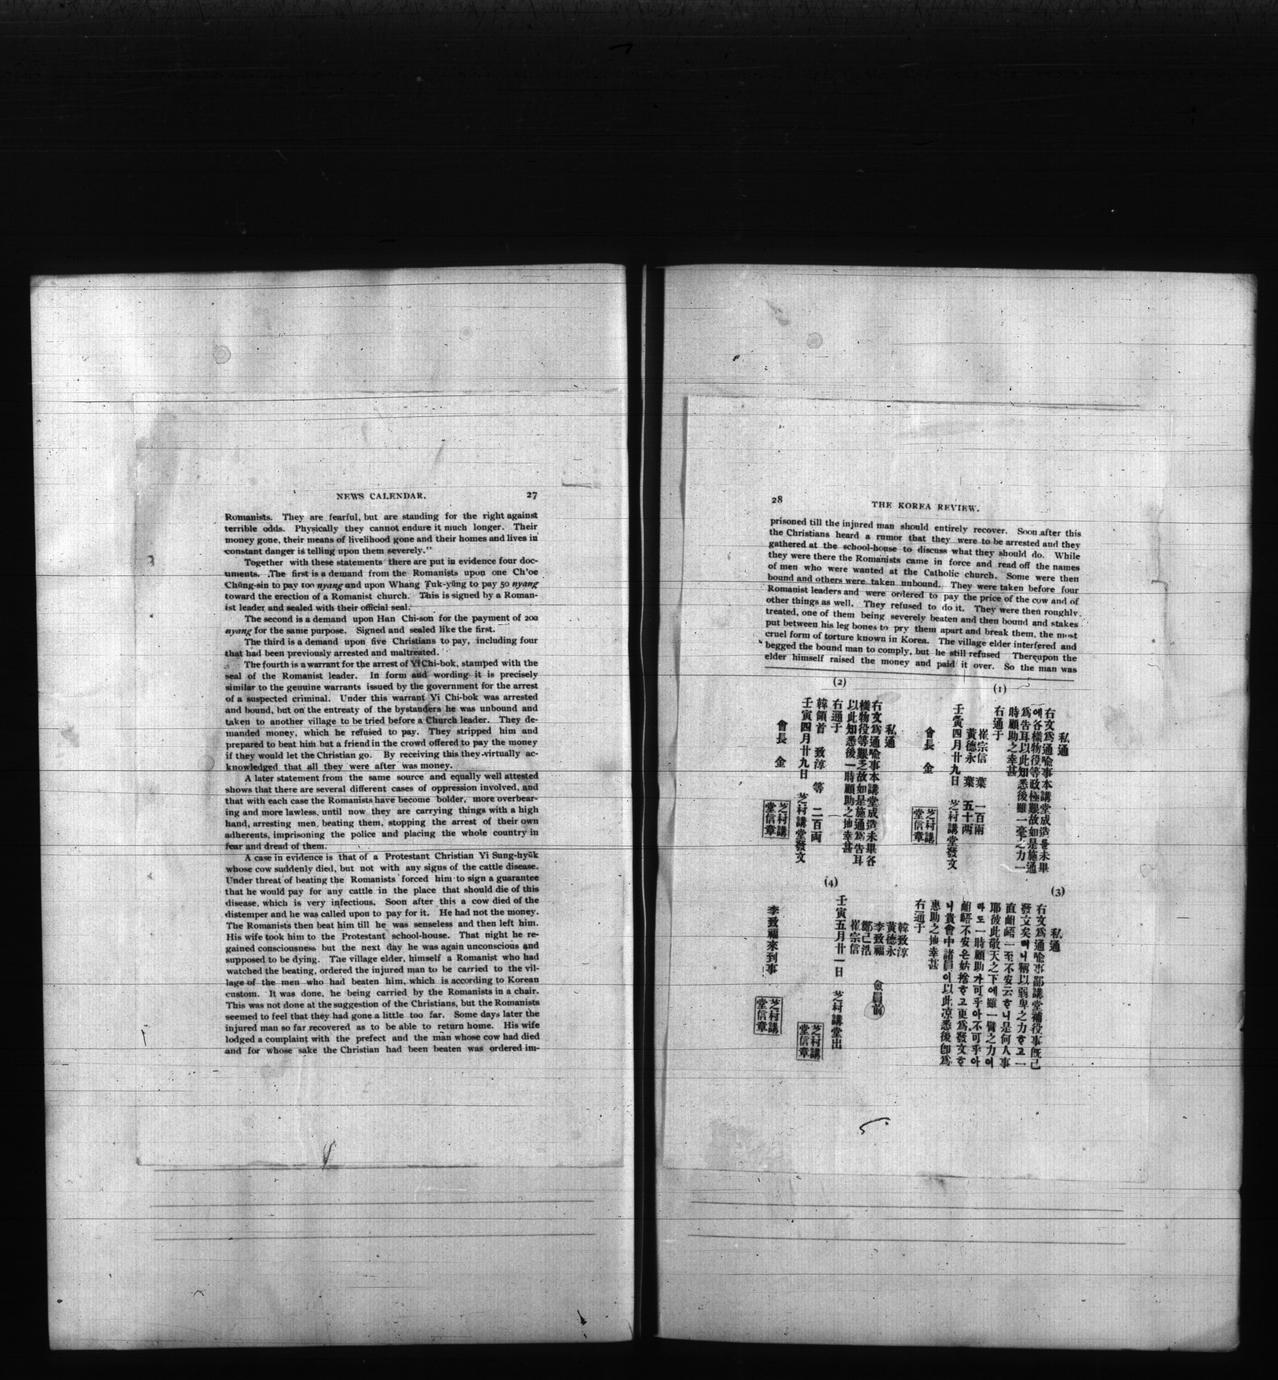 NEWS CALENDAR. 27
Romanists. They are fearful, but are standing for the right against
terrible odds. Physically they cannot endure it much longer. Their
money gone, their means of livelihood gone and their homes and lives in
constant danger is telling upon them severely."
Together with these statements there are put in evidence four doc-
uments. The first is a demand from the Romanists upon one Ch'oe
Chŭng-sin to pay 100 nyang and upon Whang Tuk-yŭng to pay 50 nyang
toward the erection of a Romanist church. This is signed by a Roman-
ist leader and sealed with their official seal.
The second is a demand upon Han Chi-son for the payment of 200
nyang for the same purpose. Signed and sealed like the first.
The third is a demand upon five Christians to pay, including four
that had been previously arrested and maltreated.
The fourth is a warrant for the arrest of Yi Chi-bok, stamped with the
seal of the Romanist leader. In form and wording it is precisely
similar to the genuine warrants issued by the government for the arrest
of a suspected criminal. Under this warrant Yi Chi-bok was arrested
and bound, but on the entreaty of the bystanders he was unbound and
taken to another village to be tried before a Church leader. They de-
manded money, which he refused to pay. They stripped him and
prepared to beat him but a friend in the crowd offered to pay the money
if they would let the Christian go. By receiving this they virtually ac-
knowledged that all they were after was money.
A later statement from the same source and equally well attested
shows that there are several different cases of oppression involved, and
that with each case the Romanists have become bolder, more overbear-
ing and more lawless, until now they are carrying things with a high
hand, arresting men, beating them, stopping the arrest of their own
adherents, imprisoning the police and placing the whole country in
fear and dread of them.
A case in evidence is that of a Protestant Christian Yi Sung-hyŭk
whose cow suddenly died, but not with any signs of the cattle disease.
Under threat of beating the Romanists forced him to sign a guarantee
that he would pay for any cattle in the place that should die of this
disease, which is very infectious. Soon after this a cow died of the
distemper and he was called upon to pay for it. He had not the money.
The Romanists then beat him till he was senseless and then left him.
His wife took him to the Protestant school-house. That night he re-
gained consciousness but the next day he was again unconscious and
supposed to be dying. The village elder, himself a Romanist who had
watched the beating, ordered the injured man to be carried to the vil-
lage of the men who had beaten him, which is according to Korean
custom. It was done, he being carried by the Romanists in a chair.
This was not done at the suggestion of the Christians, but the Romanists
seemed to feel that they had gone a little too far. Some days later the
injured man so far recovered as to be able to return home. His wife
lodged a complaint with the prefect and the man whose cow had died
and for whose sake the Christian had been beaten was ordered im-
28 THE KOREA REVIEW.
prisoned till the injured man should entirely recover. Soon after this
the Christians heard a rumor that they were to be arrested and they
gathered at the school-house to discuss what they should do. While
they were there the Romanists came in force and read off the names
of men who were wanted at the Catholic church. Some were then
bound and others were taken unbound. They were taken before four
Romanist leaders and were ordered to pay the price of the cow and of
other things as well. They refused to do it. They were then roughly
treated, one of them being severely beaten and then bound and stakes
put between his leg bones to pry them apart and break them, the most
cruel form of torture known in Korea. The village elder interfered and
begged the bound man to comply, but he still refused Thereupon the
elder himself raised the money and paid it over. So the man was
(1)
私通
右文爲通喩事本講堂成造를未畢
에各樣物役等政極艱故如是施通
爲告耳以此知悉後雖一毫之力一
時顧助之幸甚
右通于
崔宗信 葉 一百兩
黃德永 葉 五十兩
壬寅四月廿九日 芝村講堂發文
會長 金
芝村講
堂信章
(2)
私通
右文爲通喩事本講堂成造未畢各
樣物役等艱乏故如是施通爲告耳
以此知悉後一時顧助之地幸甚
右通于
韓領首 致淳 等 二百兩
壬寅四月廿九日 芝村講堂發文
會長 金
芝村講
堂信章
(3)
私通
右文爲通喩事鄙講堂補役事旣已
發文矣러니稱以弱卑之力하고一
直齟齬一至不安云하니是何人事
耶彼此敬天之下에雖一臂之力이
라도一時顧助가可乎아不可乎아
齟齬不安은姑捨하고更爲發文하
니貴會中諸員이以此凉悉後卽爲
惠助之地幸甚
右通于
韓致淳
黃德永
李致福 僉員前
鄭己浩
崔宗信
壬寅五月廿一日 芝村講堂出
芝村講
堂信章
(4)
李致福來到事
芝村講
堂信章